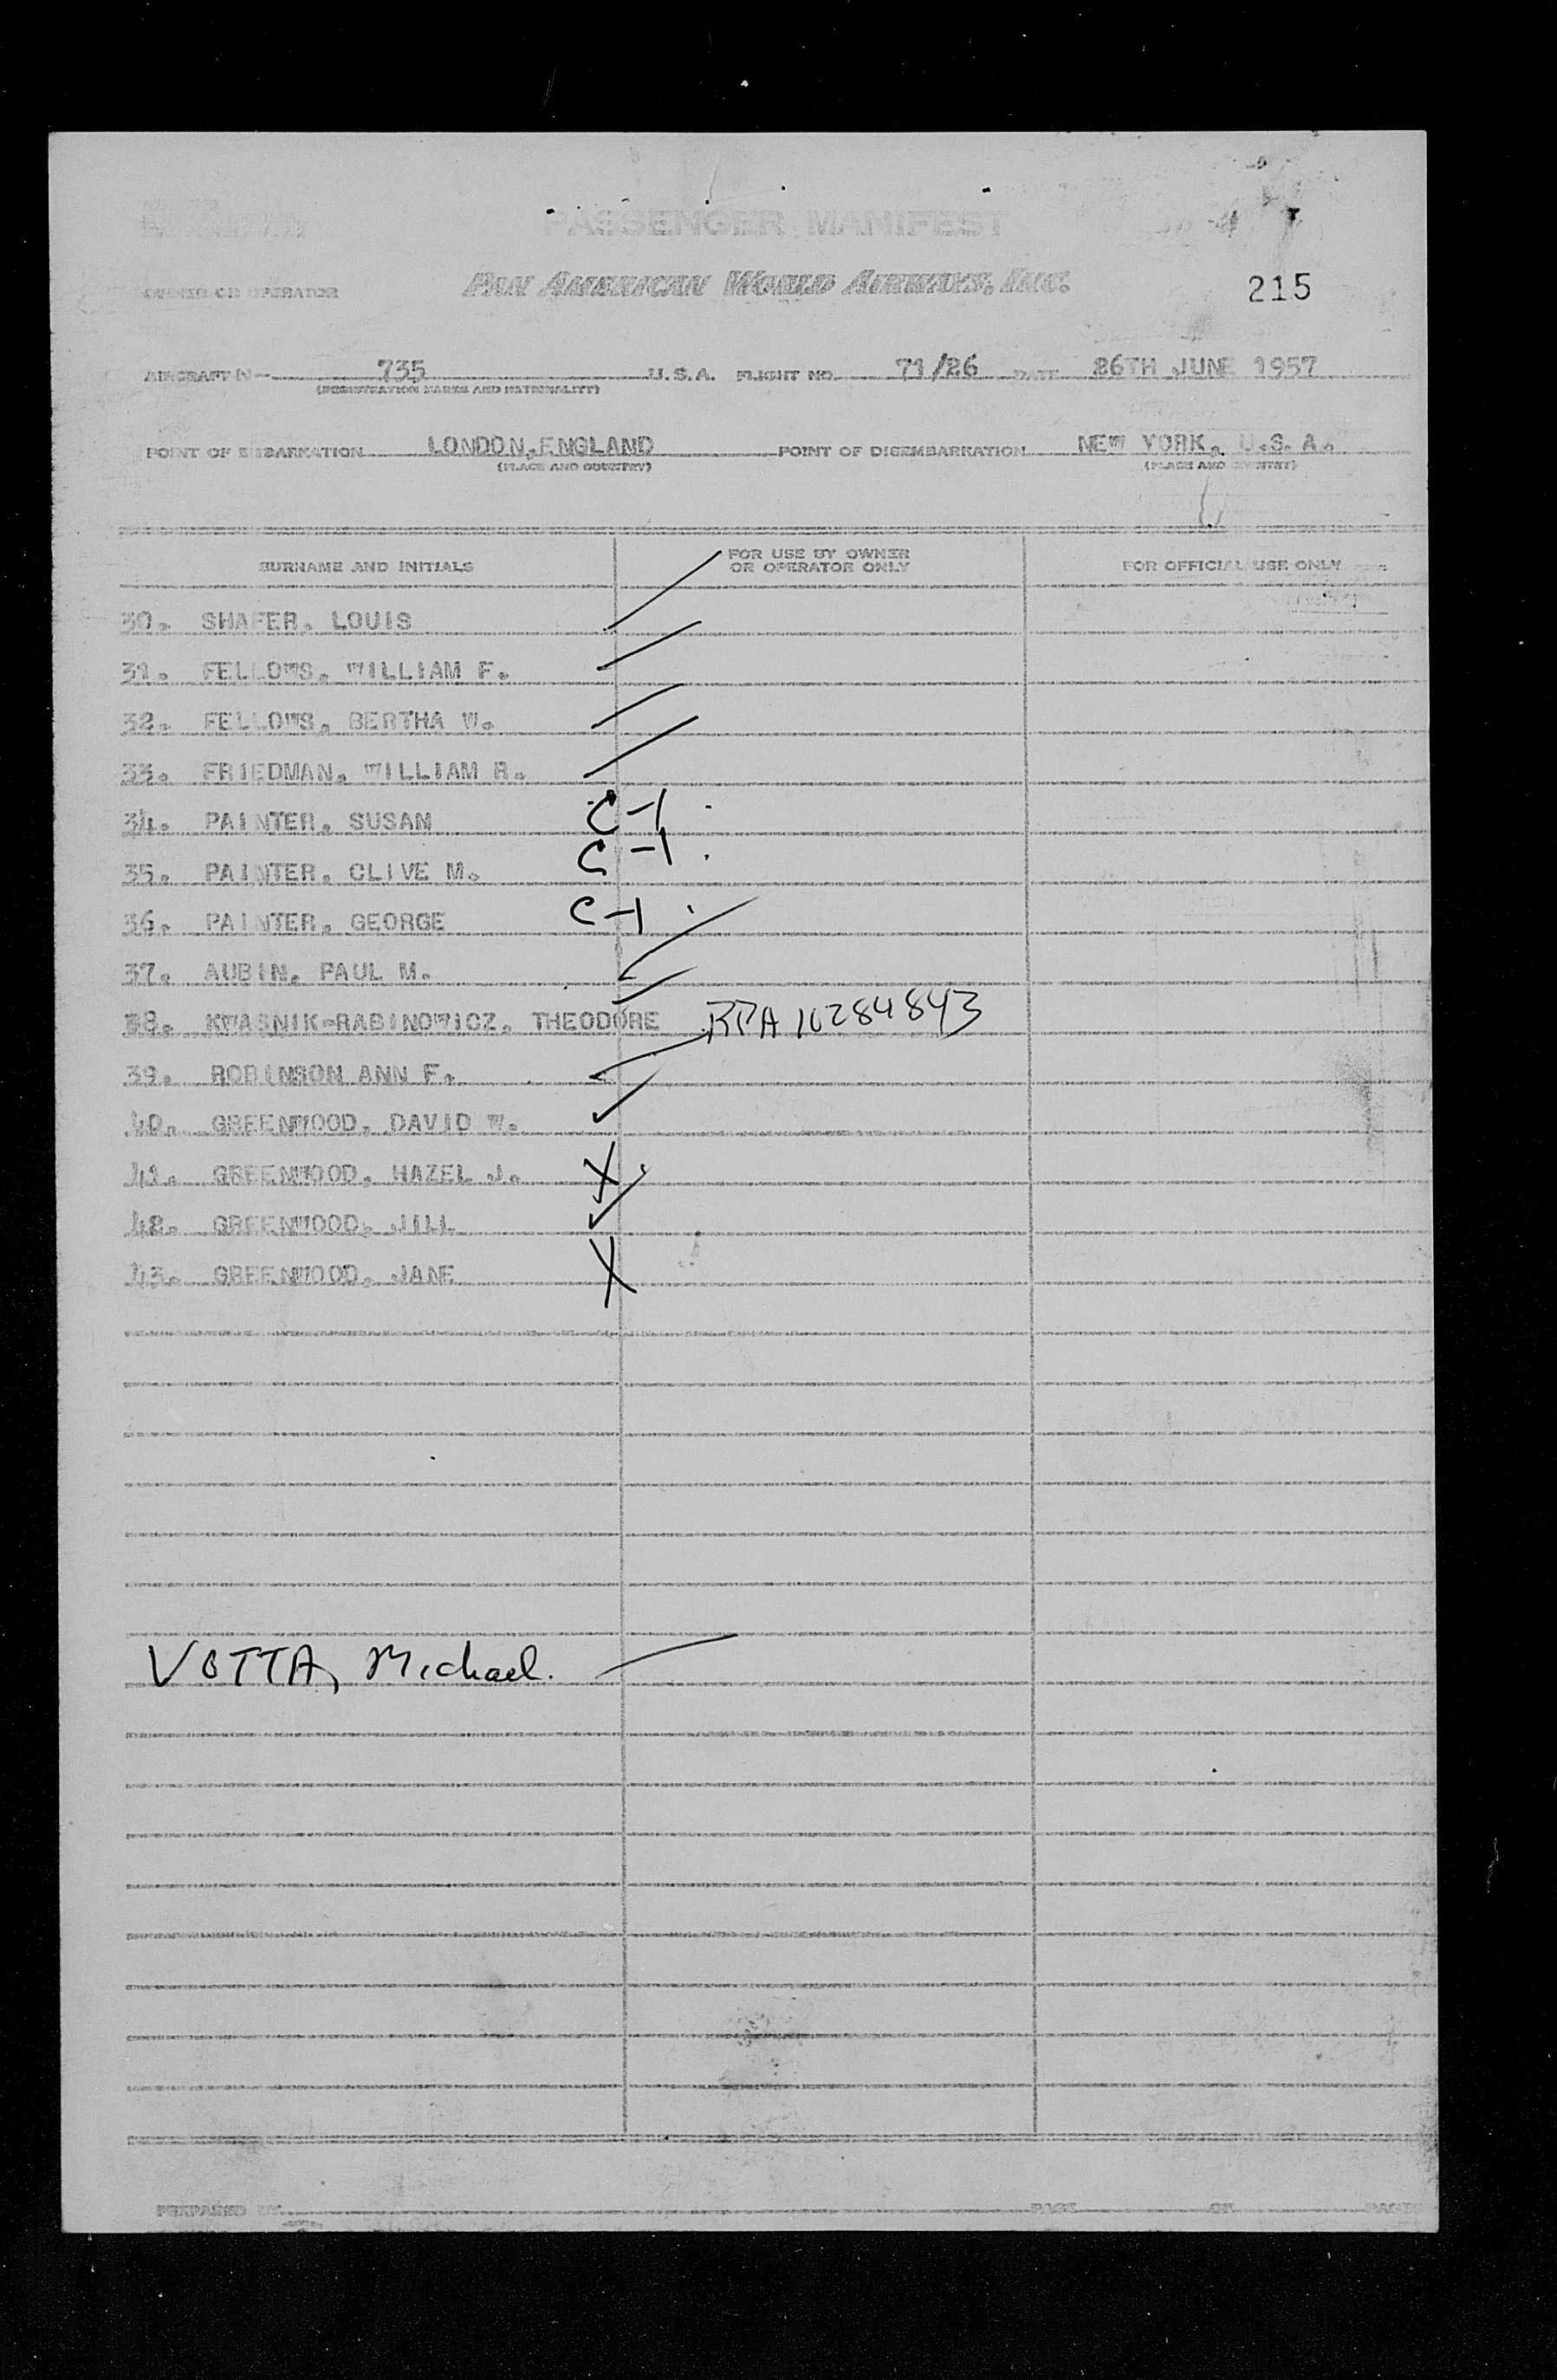 PASSENGER MANIFEST
OWNER OR OPERATOR PAN AMERICAN WORLD AIRWAYS, INC. 215
AIRCRAFT N- 735 U.S.A. FLIGHT NO. 71/26 DATE 26TH JUNE 1957
(REGISTRATION MARKS AND NATIONALITY)
POINT OF EMBARKATION LONDON, ENGLAND POINT OF DISEMBARKATION NEW YORK, U.S.A.
(PLACE AND COUNTRY) (PLACE AND COUNTRY)
SURNAME AND INITIALS FOR USE BY OWNER OR OPERATOR ONLY FOR OFFICIAL USE ONLY
30. SHAFER, LOUIS
31. FELLOWS, WILLIAM F.
32. FELLOWS, BERTHA W.
33. FRIEDMAN, WILLIAM R.
34. PAINTER, SUSAN C-1
35. PAINTER, CLIVE M. C-1
36. PAINTER, GEORGE C-1
37. AUBIN, PAUL M.
38. KWASNIK-RABINOWICZ, THEODORE RPA 10284843
39. ROBINSON ANN F.
40. GREENWOOD, DAVID W.
41. GREENWOOD, HAZEL J. X
42. GREENWOOD, JILL
43. GREENWOOD, JANE X
VOTTA, Michael.
PREPARED BY PAGE OF PAGES